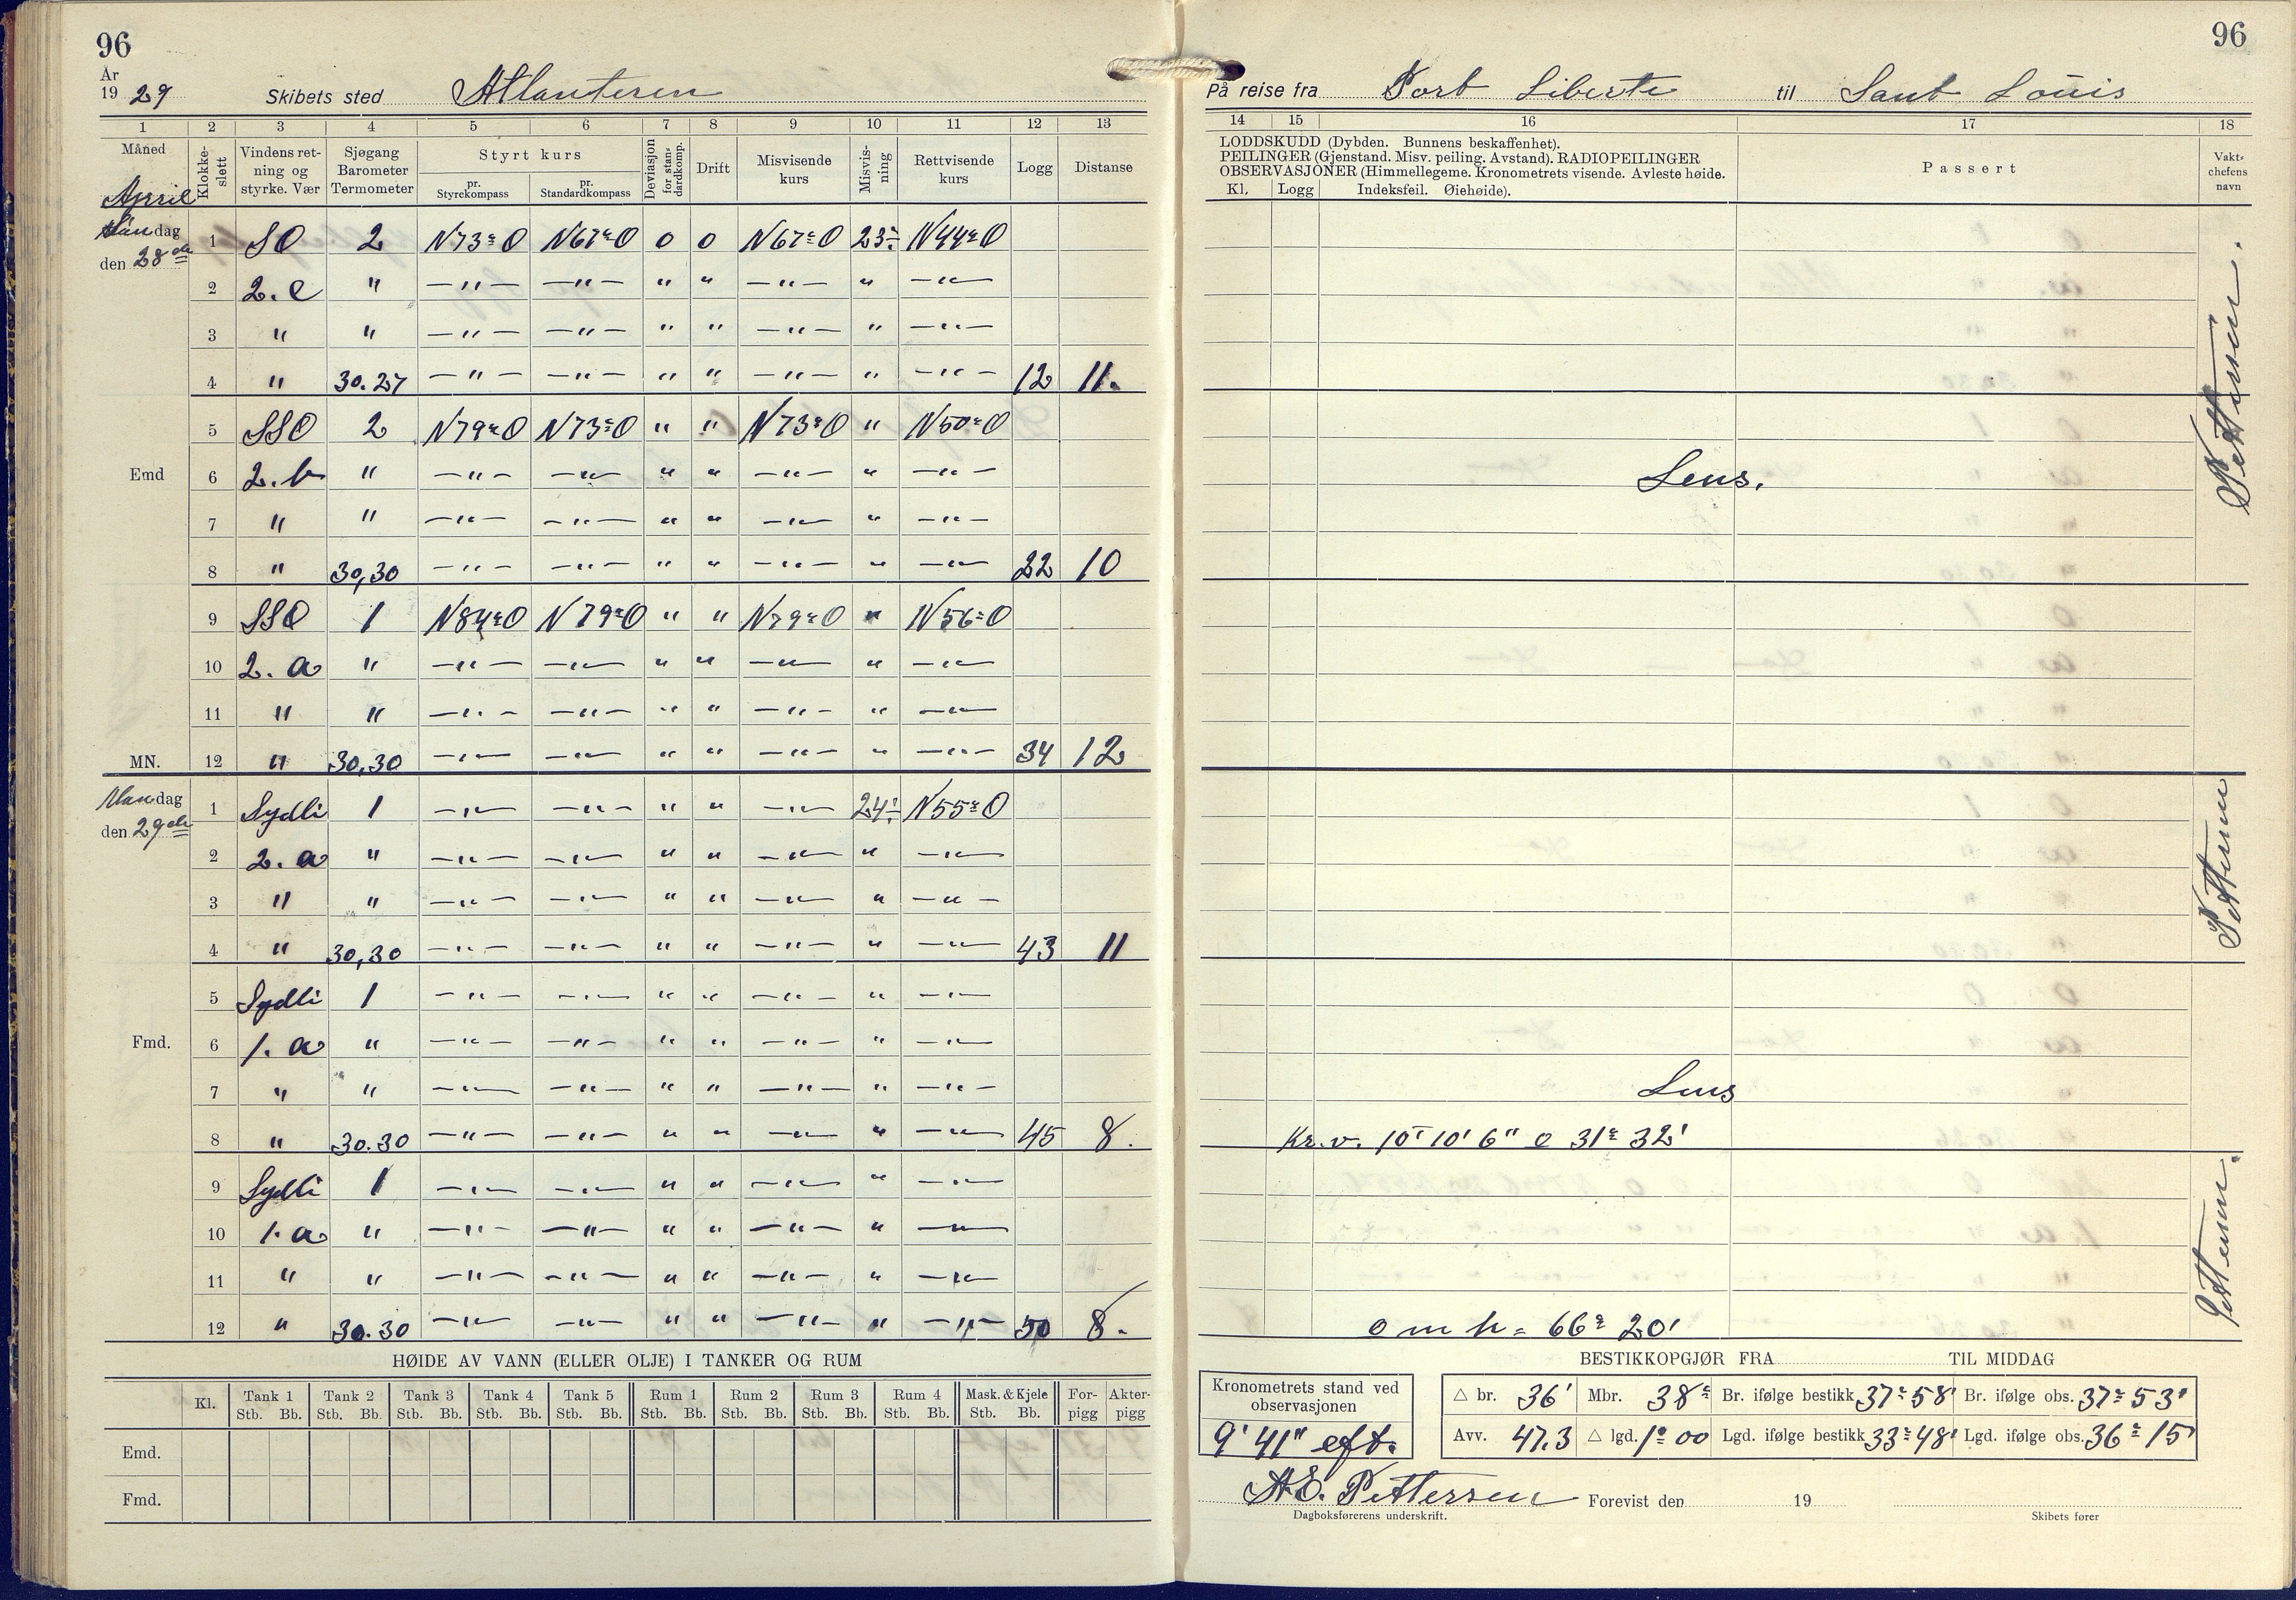 96
År
1929 Skibets sted Atlanteren
1 2 3 4 5 6 7 8 9 10 11 12 13
Måned Klokke-slett Vindens ret-ning og styrke. Vær Sjøgang Barometer Termometer Styrt kurs pr. Styrekompass pr. Standardkompass Deviasjon for stan-dardkomp. Drift Misvisende kurs Misvis-ning Rettvisende kurs Logg Distanse
April
Søndag 1 SO 2 N73°O N67°O 0 0 N67°O 23° N44°O
den 28de
2 2. c " —"— —"— " " —"— " —"—
3 " " —"— —"— " " —"— " —"—
4 " 30.27 —"— —"— " " —"— " —"— 12 11.
5 SSO 2 N79°O N73°O " " N73°O " N50°O
Emd 6 2. b " —"— —"— " " —"— " —"—
7 " " —"— —"— " " —"— " —"—
8 " 30,30 —"— —"— " " —"— " —"— 22 10
9 SSO 1 N84°O N79°O " " N79°O " N56°O
10 2. a " —"— —"— " " —"— " —"—
11 " " —"— —"— " " —"— " —"—
MN. 12 " 30,30 —"— —"— " " —"— " —"— 34 12
Mandag 1 Sydli 1 —"— —"— " " —"— 24° N55°O
den 29de
2 2. a " —"— —"— " " —"— " —"—
3 " " —"— —"— " " —"— " —"—
4 " 30,30 —"— —"— " " —"— " —"— 43 11
5 Sydli 1 —"— —"— " " —"— " —"—
Fmd. 6 1. a " —"— —"— " " —"— " —"—
7 " " —"— —"— " " —"— " —"—
8 " 30.30 —"— —"— " " —"— " —"— 45 8.
9 Sydli 1 —"— —"— " " —"— " —"—
10 1. a " —"— —"— " " —"— " —"—
11 " " —"— —"— " " —"— " —"—
12 " 30.30 —"— —"— " " —"— " —"— 50 8.
HØIDE AV VANN (ELLER OLJE) I TANKER OG RUM
Kl. Tank 1 Tank 2 Tank 3 Tank 4 Tank 5 Rum 1 Rum 2 Rum 3 Rum 4 Mask. & Kjele For-pigg Akter-pigg
Stb. Bb. Stb. Bb. Stb. Bb. Stb. Bb. Stb. Bb. Stb. Bb. Stb. Bb. Stb. Bb. Stb. Bb. Stb. Bb.
Emd.
Fmd.
96
På reise fra Port Liberte til Sant Louis
14 15 16 17 18
LODDSKUDD (Dybden. Bunnens beskaffenhet).
PEILINGER (Gjenstand. Misv. peiling. Avstand). RADIOPEILINGER
OBSERVASJONER (Himmellegeme. Kronometrets visende. Avleste høide.
Kl. Logg Indeksfeil. Øiehøide).
Passert
Vakt-chefens navn
Pettersen.
Lens.
Pettersen
Lens
Kr.v. 10T 10' 6" o 31° 32'
Pettersen.
o m h = 66° 20'
BESTIKKOPGJØR FRA TIL MIDDAG
Kronometrets stand ved observasjonen
9' 41" eft.
△ br. 36' Mbr. 38° Br. ifølge bestikk 37° 58' Br. ifølge obs. 37° 53'
Avv. 47.3 △ lgd. 1° 00 Lgd. ifølge bestikk 33° 48' Lgd. ifølge obs. 36° 15'
A.E. Pettersen Forevist den 19
Dagboksførerens underskrift. Skibets fører